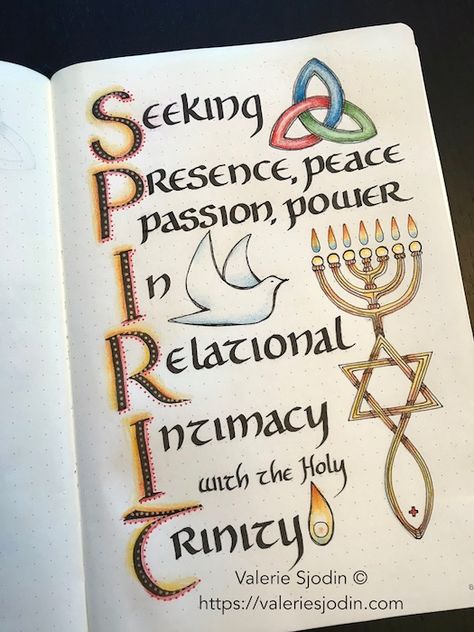 Seeking
Presence, peace
passion, power
In
Relational
Intimacy
with the Holy
Trinity
Valerie Sjodin ©
https://valeriesjodin.com